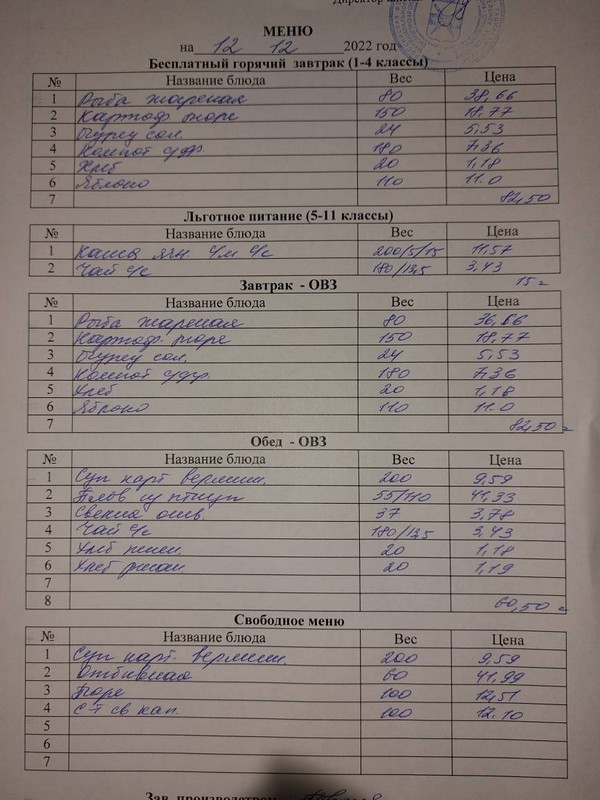 МЕНЮ
на 12 12 2022 год
Бесплатный горячий завтрак (1-4 классы)
№ Название блюда Вес Цена
1 Рыба жареная 80 38,66
2 Картоф пюре 150 18,77
3 Огурец сол. 24 5,53
4 Компот с/фр. 180 7,36
5 Хлеб 20 1,18
6 Яблоко 110 11.0
7 82,50
Льготное питание (5-11 классы)
№ Название блюда Вес Цена
1 Каша ячн с/м с/с 200/5/15 11,57
2 Чай с/с 180/13,5 3,43
15
Завтрак - ОВЗ
№ Название блюда Вес Цена
1 Рыба жареная 80 38,66
2 Картоф. пюре 150 18,77
3 Огурец сол. 24 5,53
4 Компот с/фр. 180 7,36
5 Хлеб 20 1,18
6 Яблоко 110 11.0
7 82,50
Обед - ОВЗ
№ Название блюда Вес Цена
1 Суп карт вермиш. 200 9,59
2 Плов из птицы 55/110 41,33
3 Свекла отв. 37 3,78
4 Чай с/с 180/13,5 3,43
5 Хлеб пшен. 20 1,18
6 Хлеб ржан. 20 1,19
7
8 60,50
Свободное меню
№ Название блюда Вес Цена
1 Суп карт. вермиш. 200 9,59
2 Отбивная 60 41,99
3 Пюре 100 12,51
4 С-т св кап. 100 12.10
5
6
7
Зав. производством